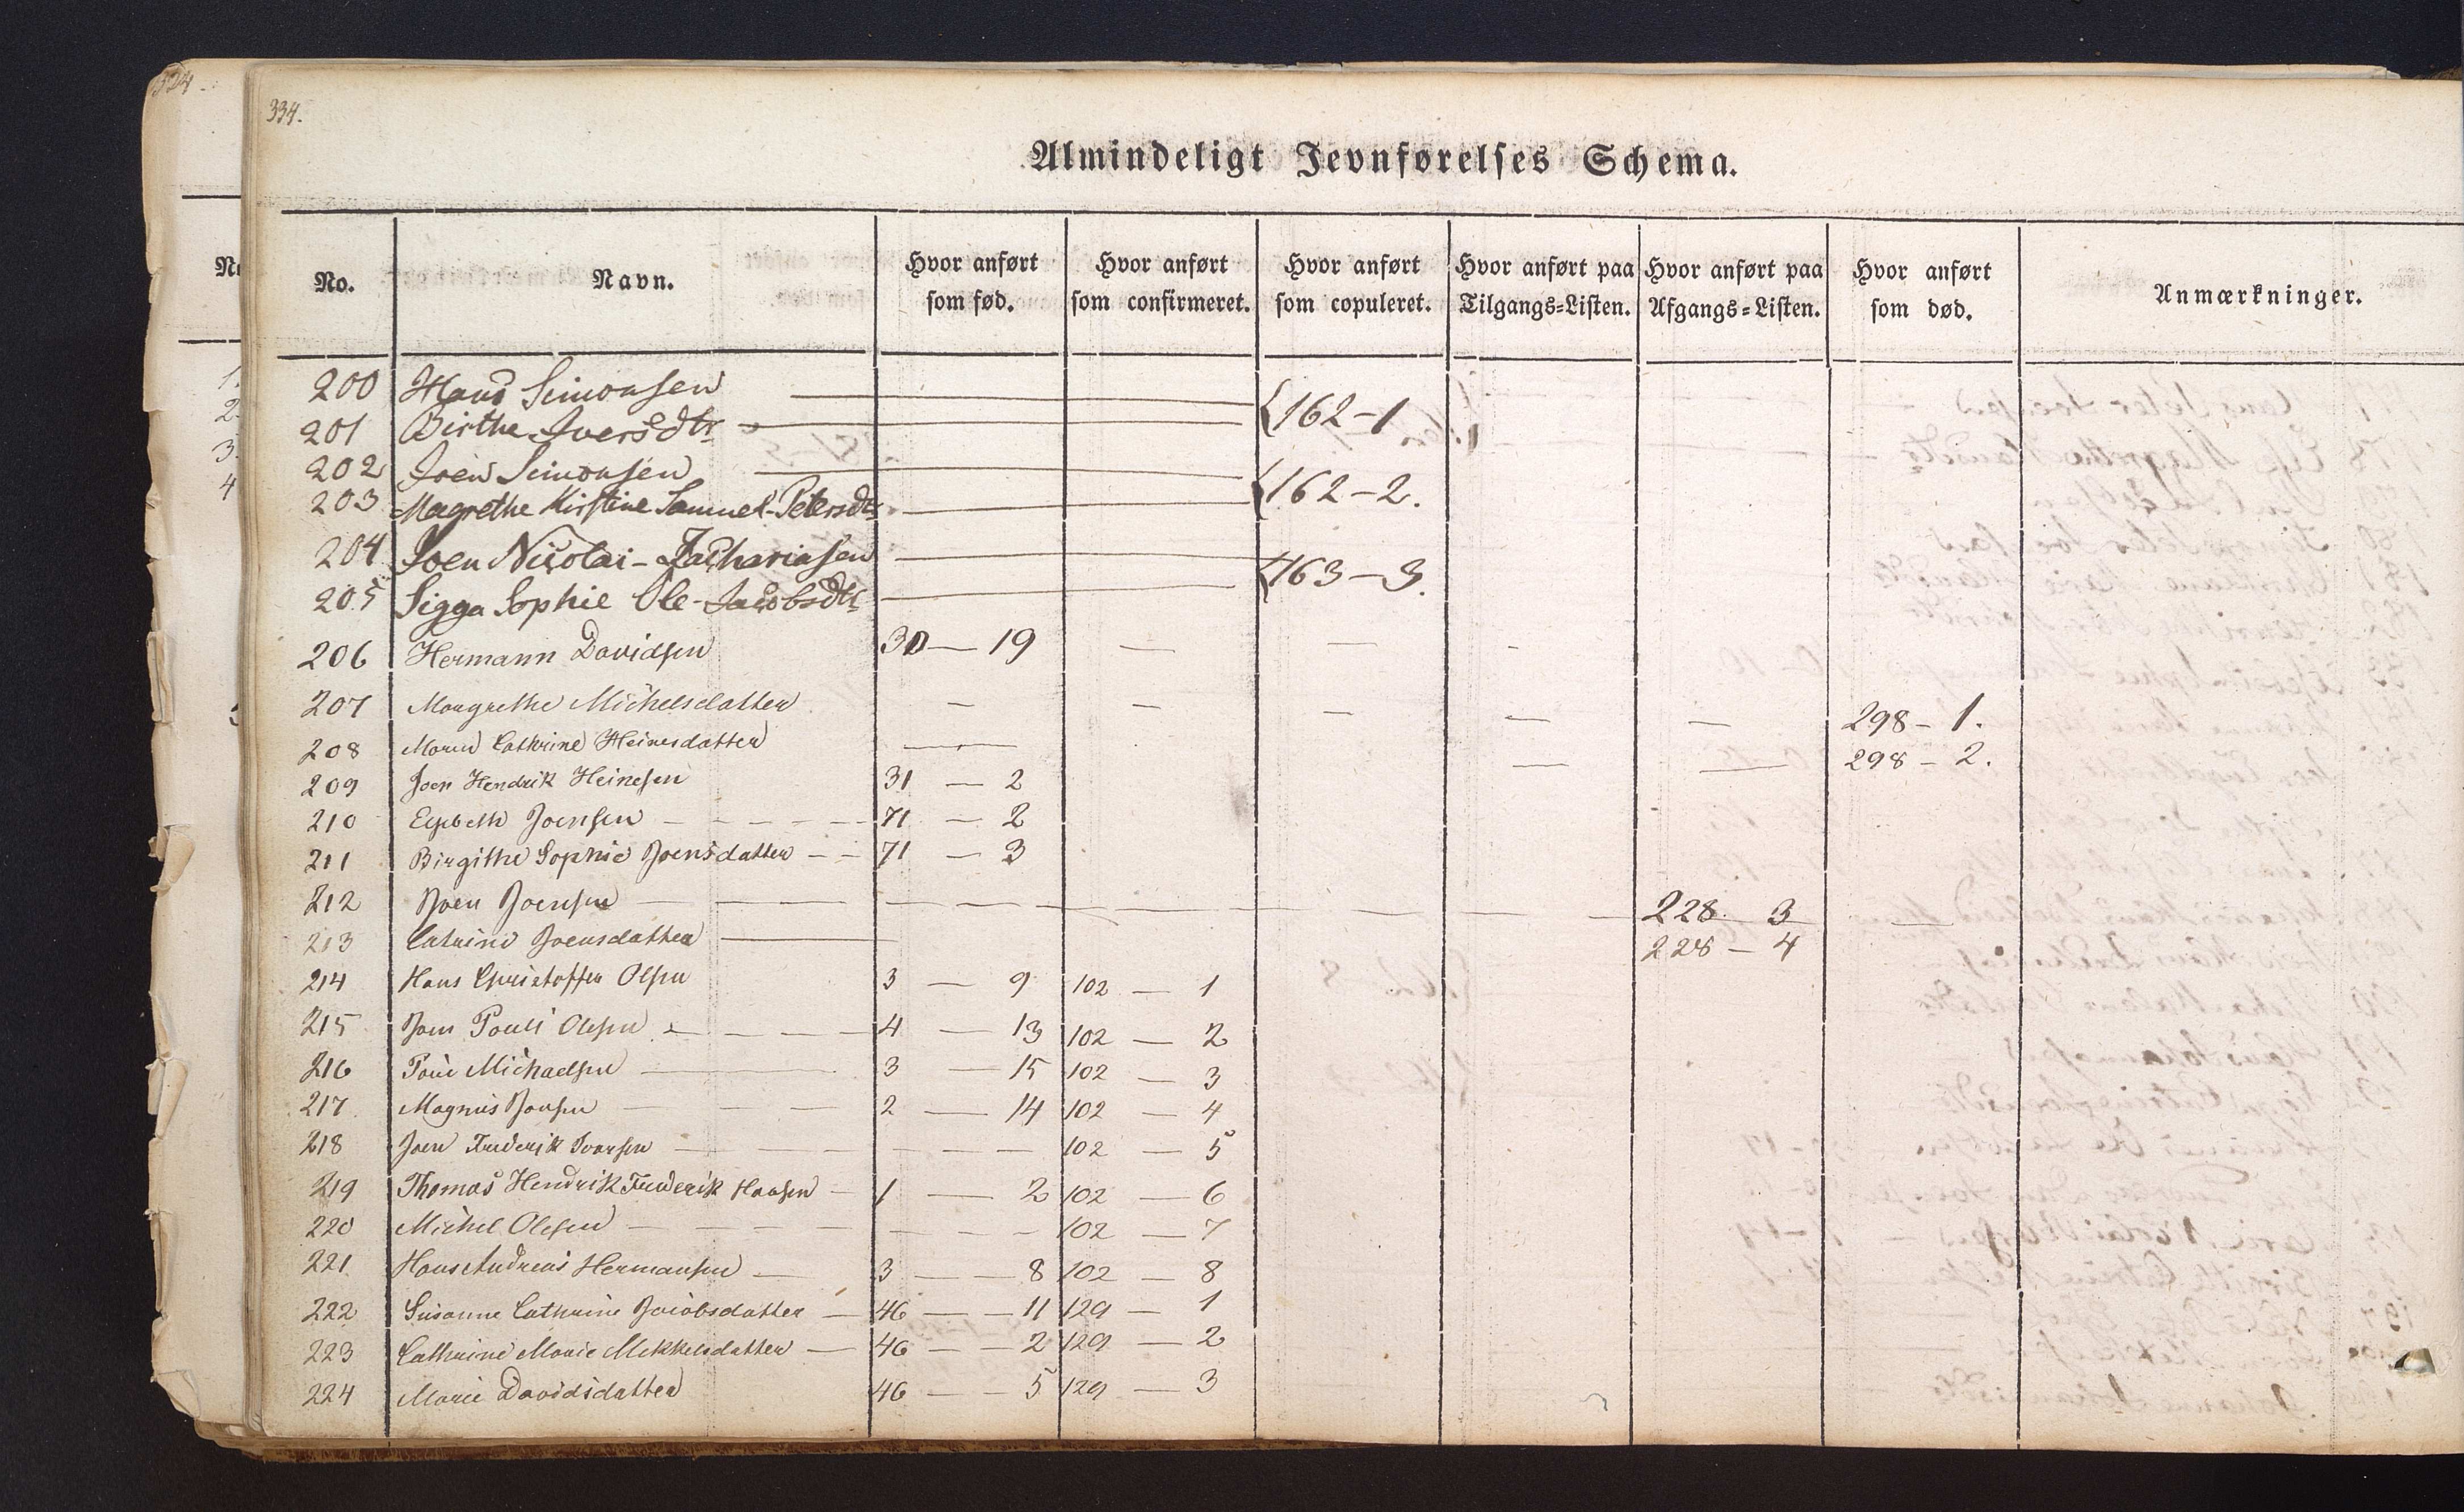 334.
Almindeligt Jevnførelses Schema.
No. Navn. Hvor anført som fød. Hvor anført som confirmeret. Hvor anført som copuleret. Hvor anført paa Tilgangs=Listen. Hvor anført paa Afgangs=Listen. Hvor anført som død. Anmærkninger.
200 Hans Simonsen {162-1
201 Birthe Iversdtr
202 Joen Simonsen {162-2.
203 Magrethe Kirstine Samuel-Petersdtr
204 Joen Nicolai-Zachariasen {163-3.
205 Sigga Sophie Ole-Jacobsdtr
206 Hermann Davidsen 30 — 19 — — -
207 Margrethe Michelsdatter — — — — — 298-1.
208 Maren Cathrine Heinesdatter — — — 298-2.
209 Joen Hendrik Heinesen 31 — 2
210 Elsebeth Joensen 71 — 2
211 Birgithe Sophie Joensdatter 71 — 3
212 Joen Joensen 228. 3 —
213 Catrine Joensdatter 228-4
214 Hans Christoffer Olsen 3 — 9 102 — 1
215 Joen Pouli Olesen 4 — 13 102 — 2
216 Michaelsen 3 — 15 102 — 3
217 Magnus Joensen 2 — 14 102 — 4
218 Joen Frederik 102 — 5
219 Thomas Hendrik Frederik Hansen 1 — 2 102 — 6
220 Michel Olesen 102 — 7
221 Hans Andreas Hermansen 3 — 8 102 — 8
222 Susanne Cathrine Jacobsdatter 46 — 11 129 — 1
223 Cathrine Marie Mikkelsdatter 46 — 2 129 — 2
224 Marie Davidsdatter 46 — 5 129 — 3